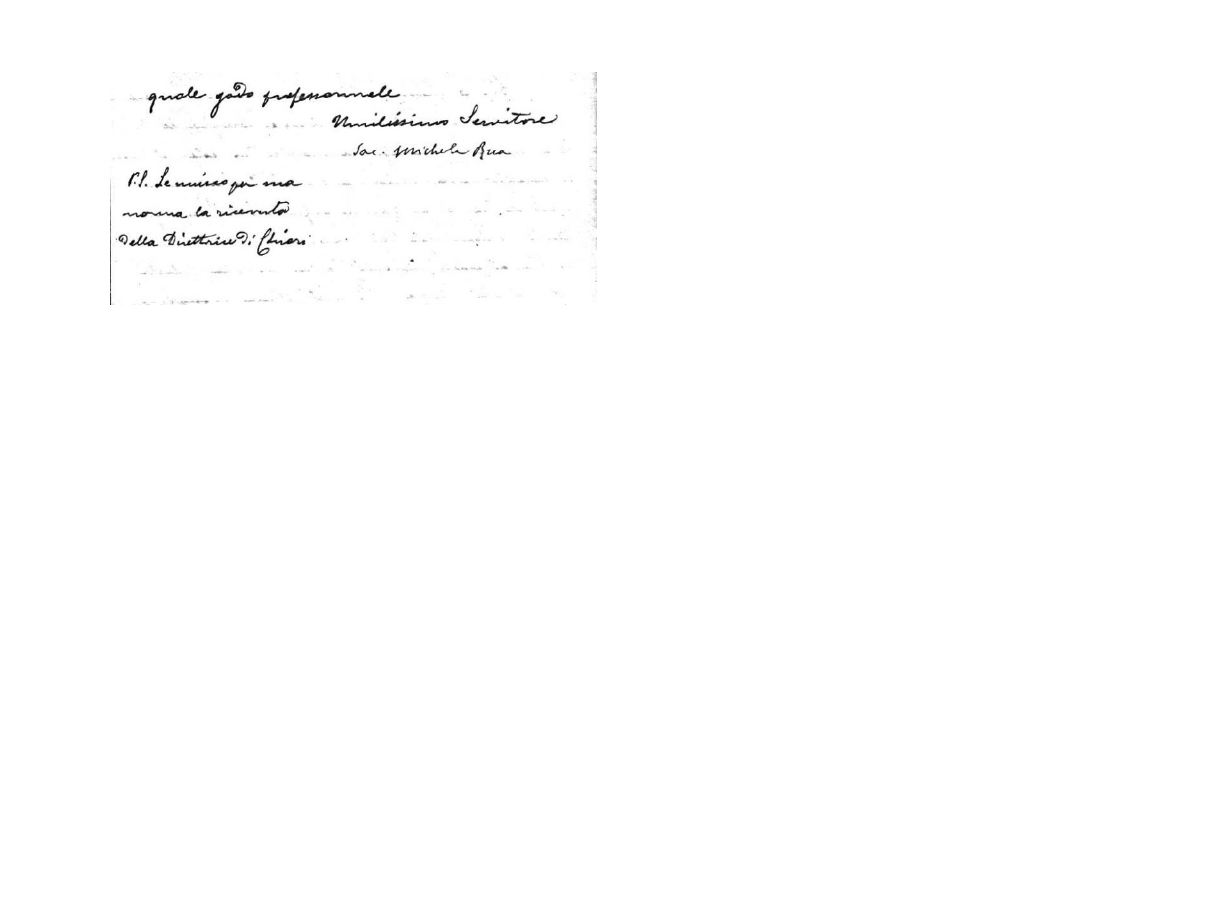 quale godo professarmele
Umilissimo Servitore
Sac. Michele Rua
P.S. Le unisco per sua
norma la ricevuta
della Direttrice di Chieri